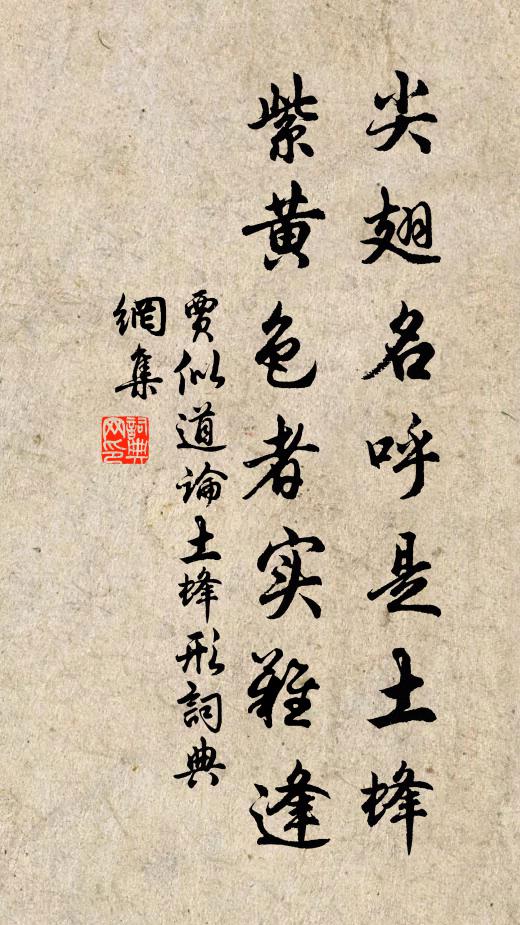 尖翅名呼是土蜂
紫黄色者实難逢
賈似道論土蜂形詞典
網集
詞典
网印